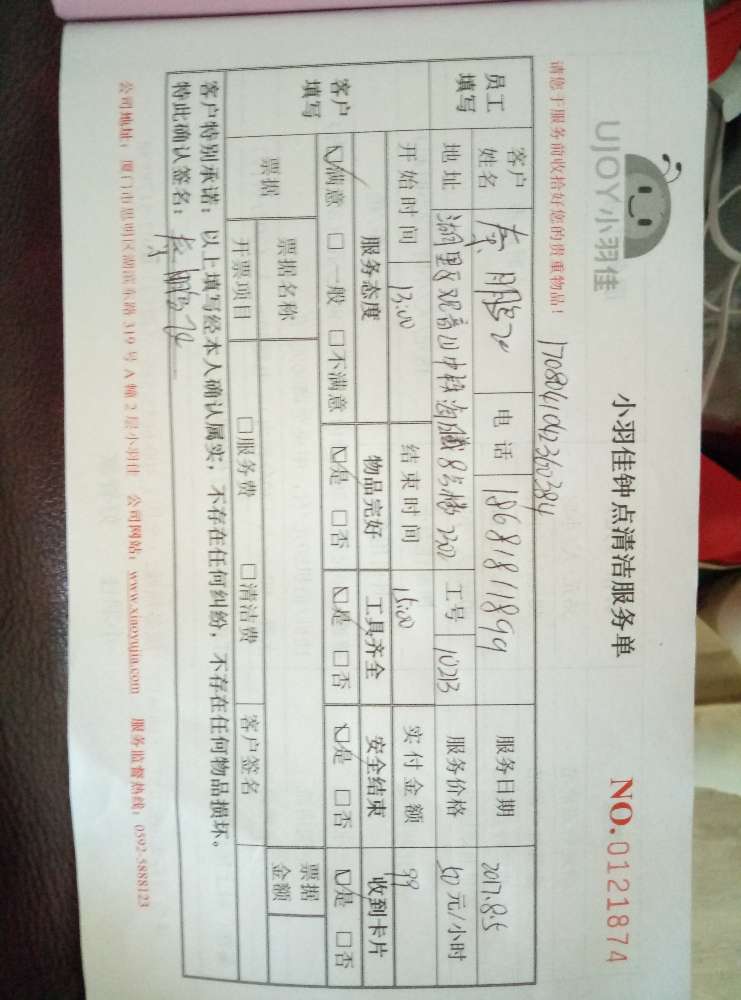 UJOY小羽佳
小羽佳钟点清洁服务单
NO.0121874
请您于服务前收拾好您的贵重物品！
1708041042360384
员工填写 客户姓名 电话 18681811899 服务日期 2017.8.5
地址 湖里区观音山中骏 8号楼2302 工号 10213 服务价格 50元/小时
开始时间 13:00 结束时间 15:00 实付金额 99
客户填写 服务态度 物品完好 工具齐全 安全结束 收到卡片
☑满意 □一般 □不满意 ☑是 □否 ☑是 □否 ☑是 □否 ☑是 □否
票据 票据名称 票据金额
开票项目 □服务费 □清洁费 客户签名
客户特别承诺：以上填写经本人确认属实，不存在任何纠纷，不存在任何物品损坏。
特此确认签名：
公司地址：厦门市思明区湖滨东路319号A幢2层小羽佳 公司网站：www.xiaoyujia.com 服务监督热线：0592-5888123